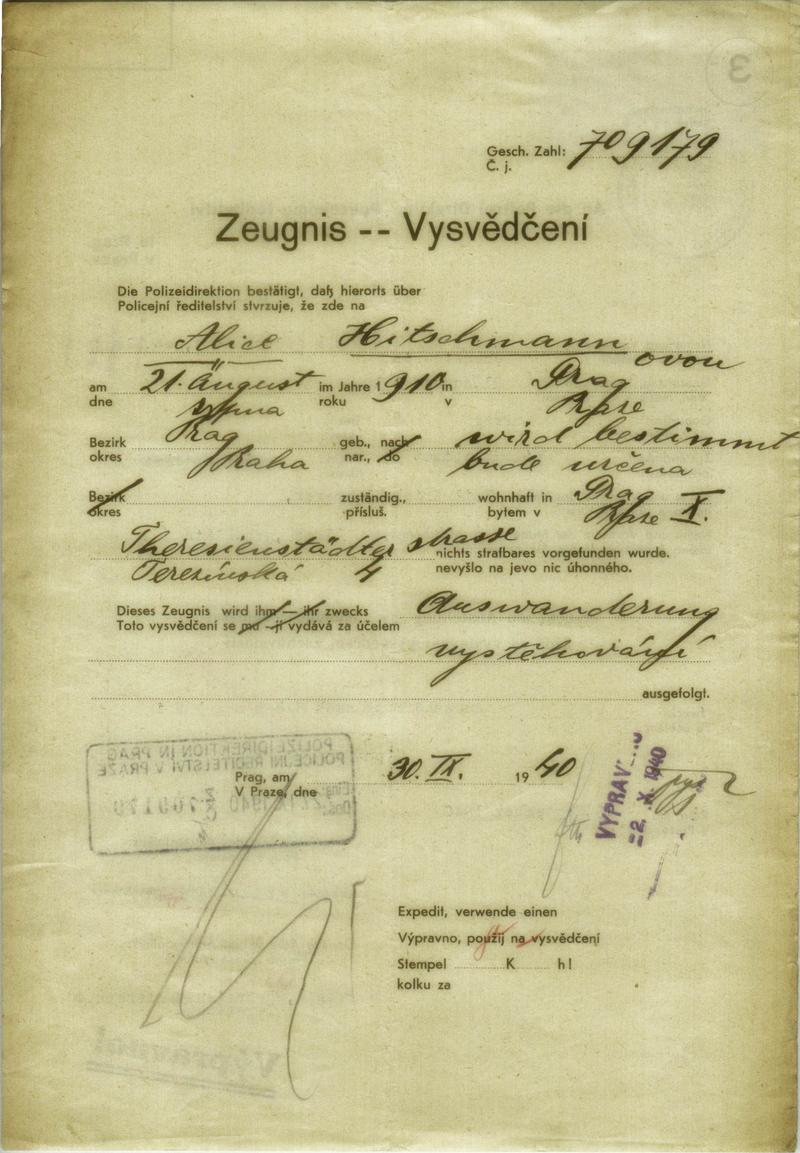 Gesch. Zahl: 709179
Č. j.
Zeugnis -- Vysvědčení
Die Polizeidirektion bestätigt, daß hierorts über
Policejní ředitelství stvrzuje, že zde na
Alice Hitschmann
ovou
am 21. August im Jahre 1910 in Prag
dne srpna roku v Praze
Bezirk Prag geb., nach wird bestimmt
okres Praha nar., do bude určena
Bezirk zuständig., wohnhaft in Prag
okres přísluš. bytem v Praze X.
Theresienstädter strasse nichts strafbares vorgefunden wurde.
Terezínská 4 nevyšlo na jevo nic úhonného.
Dieses Zeugnis wird ihm — ihr zwecks Auswanderung
Toto vysvědčení se mu — jí vydává za účelem
vystěhování
ausgefolgt.
POLIZEIDIREKTION IN PRAG
POLICEJNÍ ŘEDITELSTVÍ V PRAZE
Prag, am 30. IX. 1940
V Praze, dne
VYPRAV
=2. X. 1940
Expedit, verwende einen
Výpravno, použij na vysvědčení
Stempel K h!
kolku za
Výpravno!
3